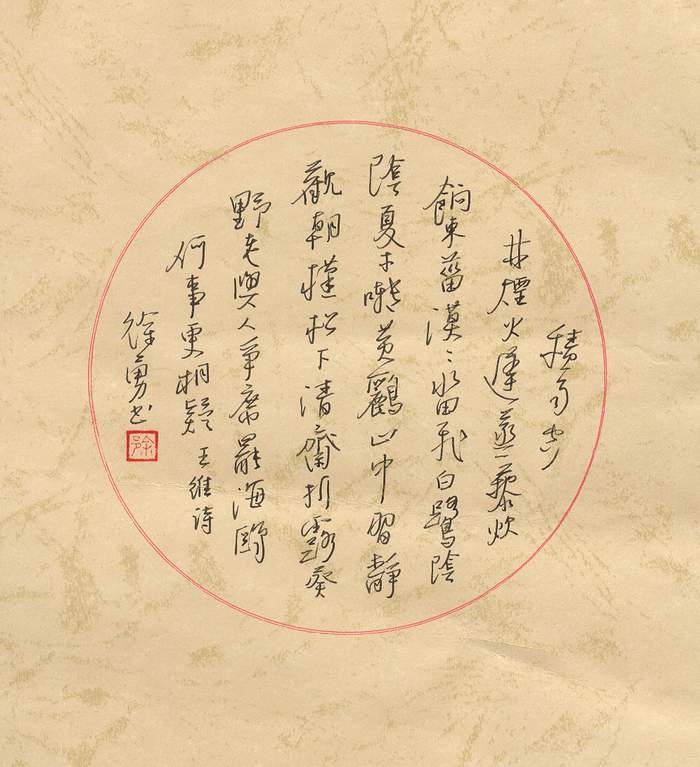 積雨空
林煙火遲蒸藜炊
餉東菑漠〻水田飛白鷺陰
陰夏木囀黄鸝山中習靜
觀朝槿松下清齋折露葵
野老與人爭席罷海鷗
何事更相疑 王維詩
徐勇书
徐